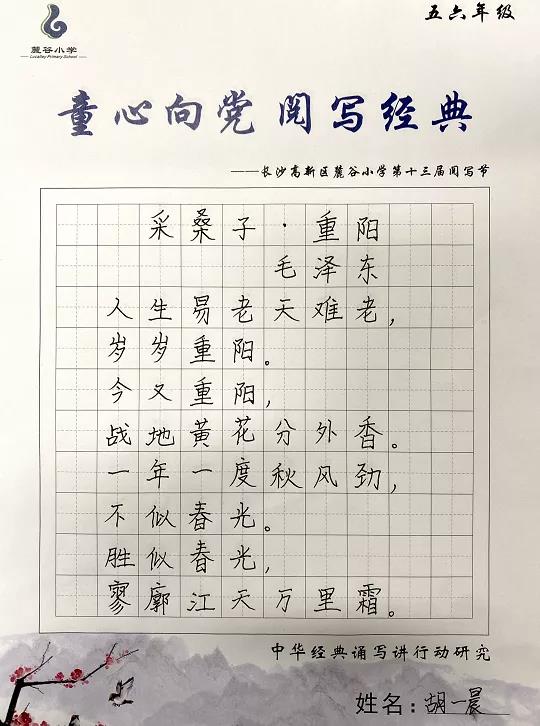 五六年级
麓谷小学
Lucalley Primary School
童心向党 阅写经典
——长沙高新区麓谷小学第十三届阅写节
采桑子·重阳
毛泽东
人生易老天难老，
岁岁重阳。
今又重阳，
战地黄花分外香。
一年一度秋风劲，
不似春光。
胜似春光，
寥廓江天万里霜。
中华经典诵写讲行动研究
姓名：胡一晨